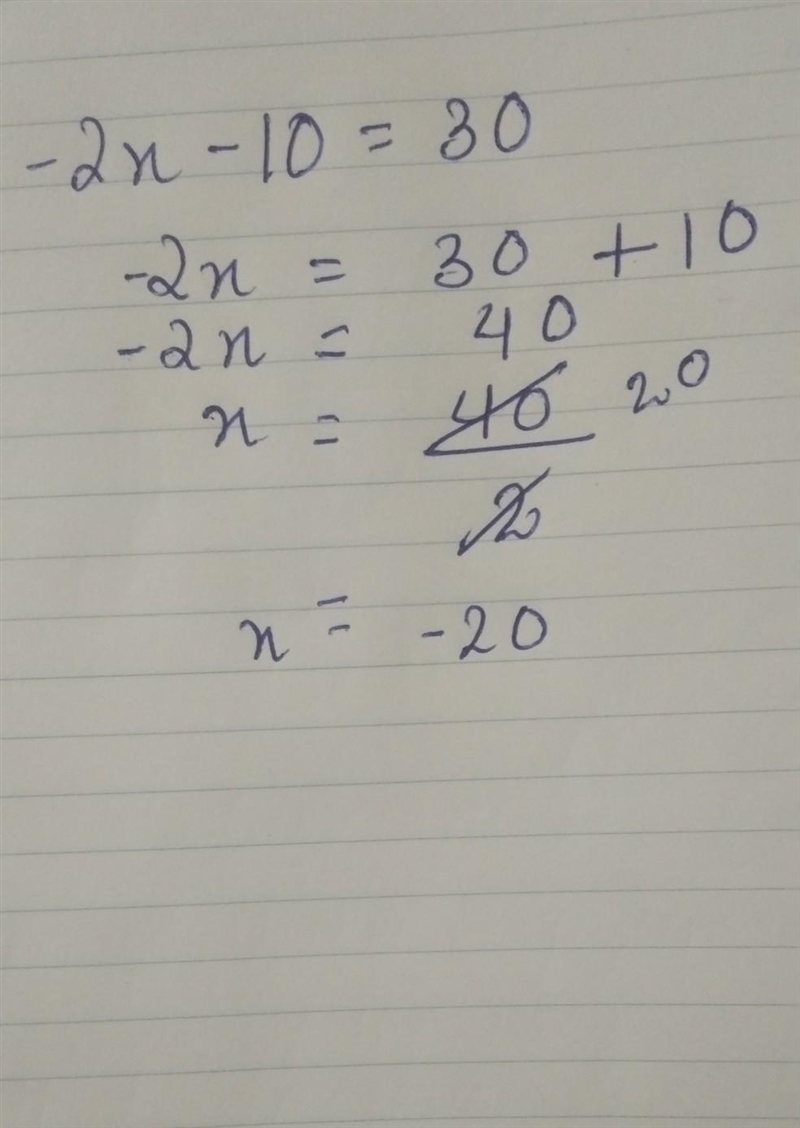 -2x - 10 = 30
-2x = 30 + 10
-2x = 40
x = 40 20
2
x = -20